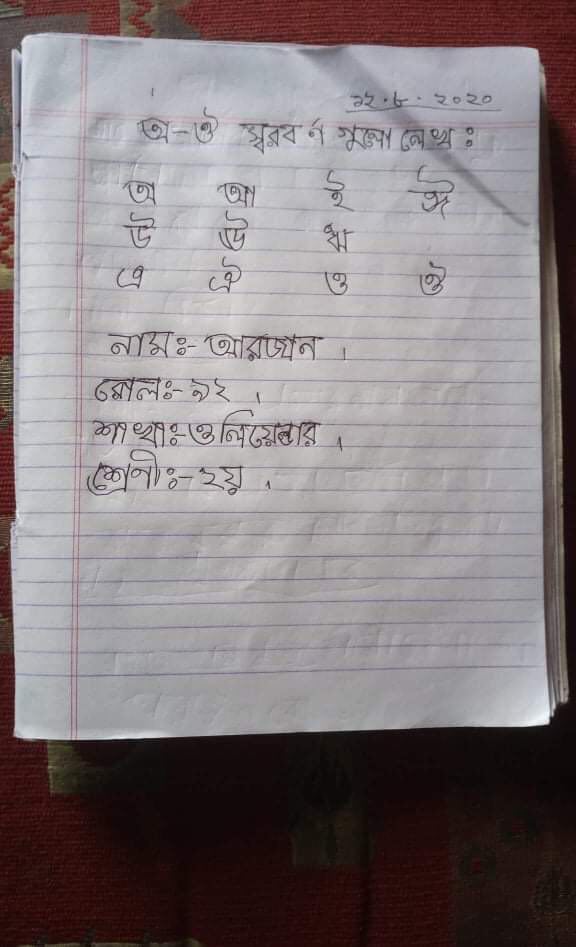 ১২.৮.২০২০
অ-ঔ স্বরবর্ণ গুলো লেখ ঃ
অ আ ই ঈ
উ ঊ ঋ
এ ঐ ও ঔ
নাম ঃ- আরজান ।
রোল ঃ- ১২ ।
শাখা ঃ ওলিয়েন্ডার ।
শ্রেণী ঃ- ২য় ।